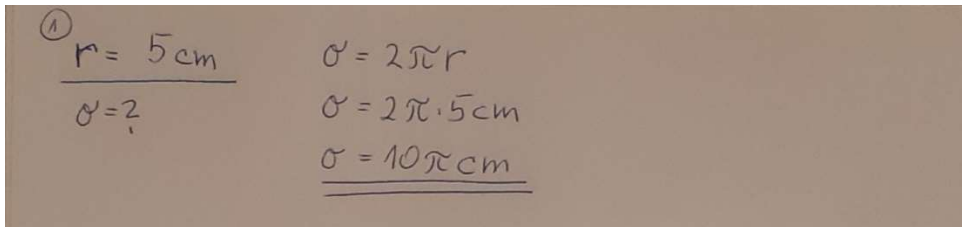 ①
r = 5 cm
σ = ?
σ = 2πr
σ = 2π · 5 cm
σ = 10π cm